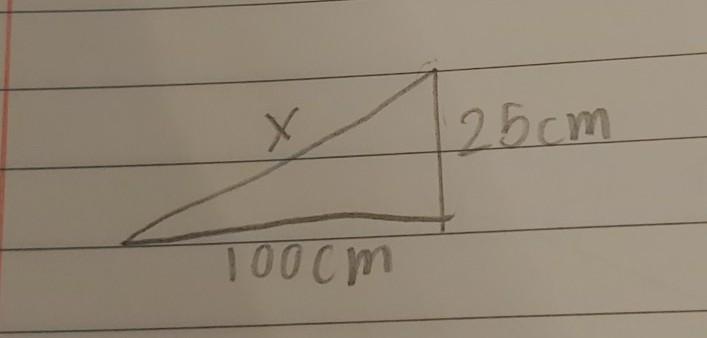 x
25cm
100cm